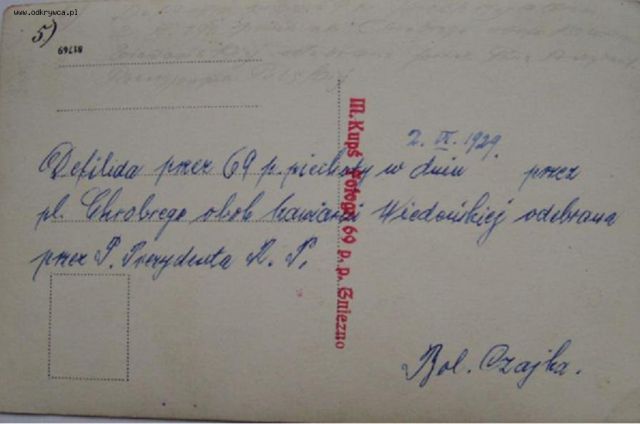 www.odkrywca.pl
5)
81769
M. Kupś Fotogr. 69 p. p. Gniezno
2. IX. 1929.
Defilada przez 69 p. piechoty w dniu przez
pl. Chrobrego obok kawiarni Wiedeńskiej odebrana
przez P. Prezydenta R. P.
Bol. Czajka.